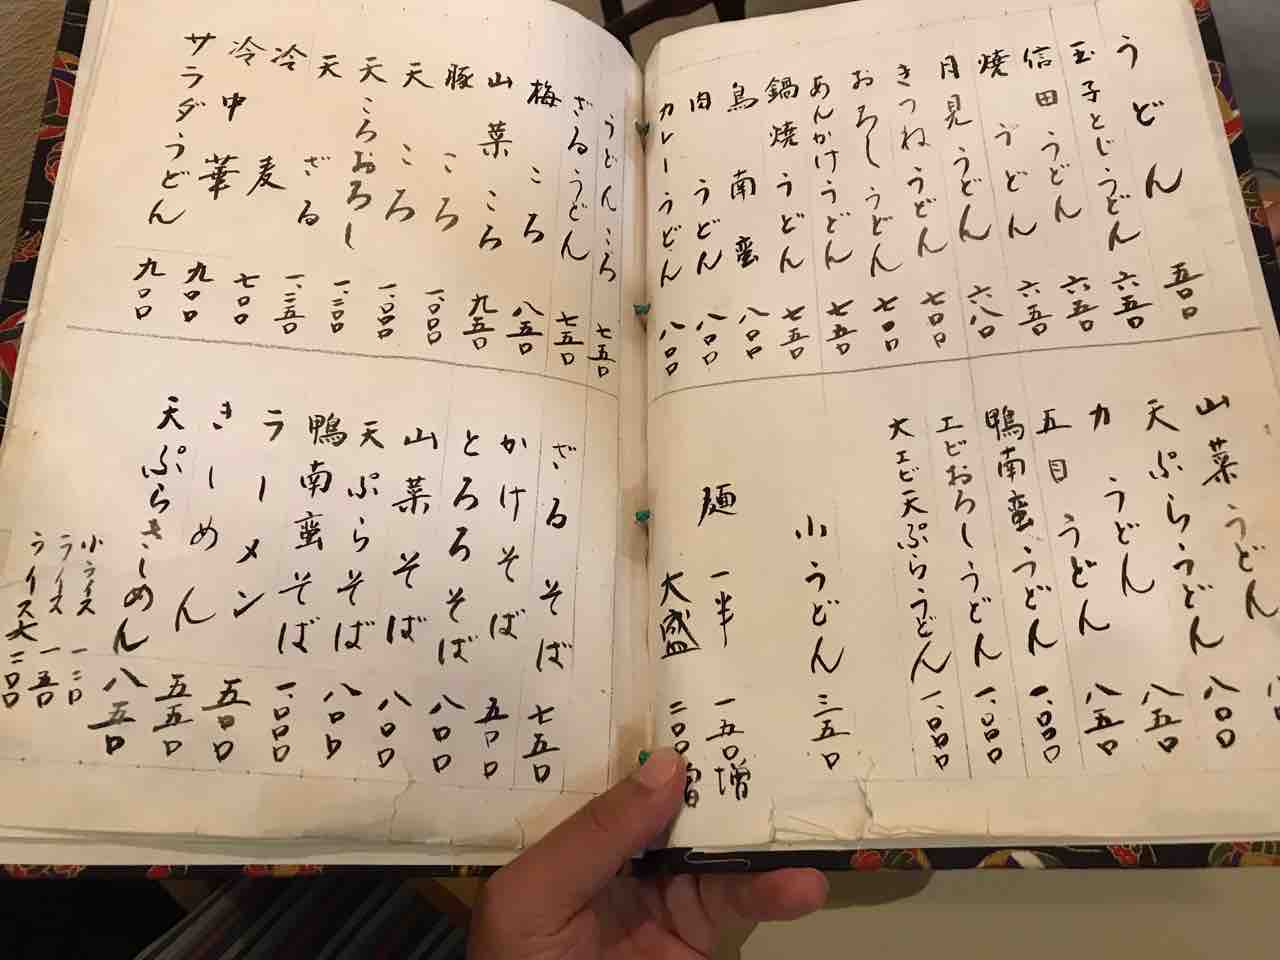 うどん 五〇〇
玉子とじうどん 六五〇
信田うどん 六五〇
焼うどん 六五〇
月見うどん 六八〇
きつねうどん 七〇〇
おろしうどん 七〇〇
あんかけうどん 七五〇
鍋焼うどん 七五〇
鳥南蛮 八〇〇
肉うどん 八〇〇
カレーうどん 八〇〇
山菜うどん
天ぷらうどん 八〇〇
力うどん 八五〇
五目うどん 八五〇
鴨南蛮うどん 一、〇〇〇
エビおろしうどん 一、〇〇〇
大エビ天ぷらうどん 一、〇〇〇
小うどん 三五〇
麺 一半 一五〇増
大盛 二〇〇増
うどんころ 七五〇
ざるうどん 七五〇
梅ころ 八五〇
山菜ころ 九五〇
豚ころ 一、〇〇〇
天ころ 一、〇〇〇
天ころおろし 一、二〇〇
天ざる 一、二五〇
冷麦 七〇〇
冷中華 九〇〇
サラダうどん 九〇〇
ざるそば 七五〇
かけそば 五〇〇
とろろそば 八〇〇
山菜そば 八〇〇
天ぷらそば 八〇〇
鴨南蛮そば 一、〇〇〇
ラーメン 五〇〇
きしめん 五五〇
天ぷらきしめん 八五〇
小ライス 一二〇
ライス 一五〇
ライス大 二〇〇